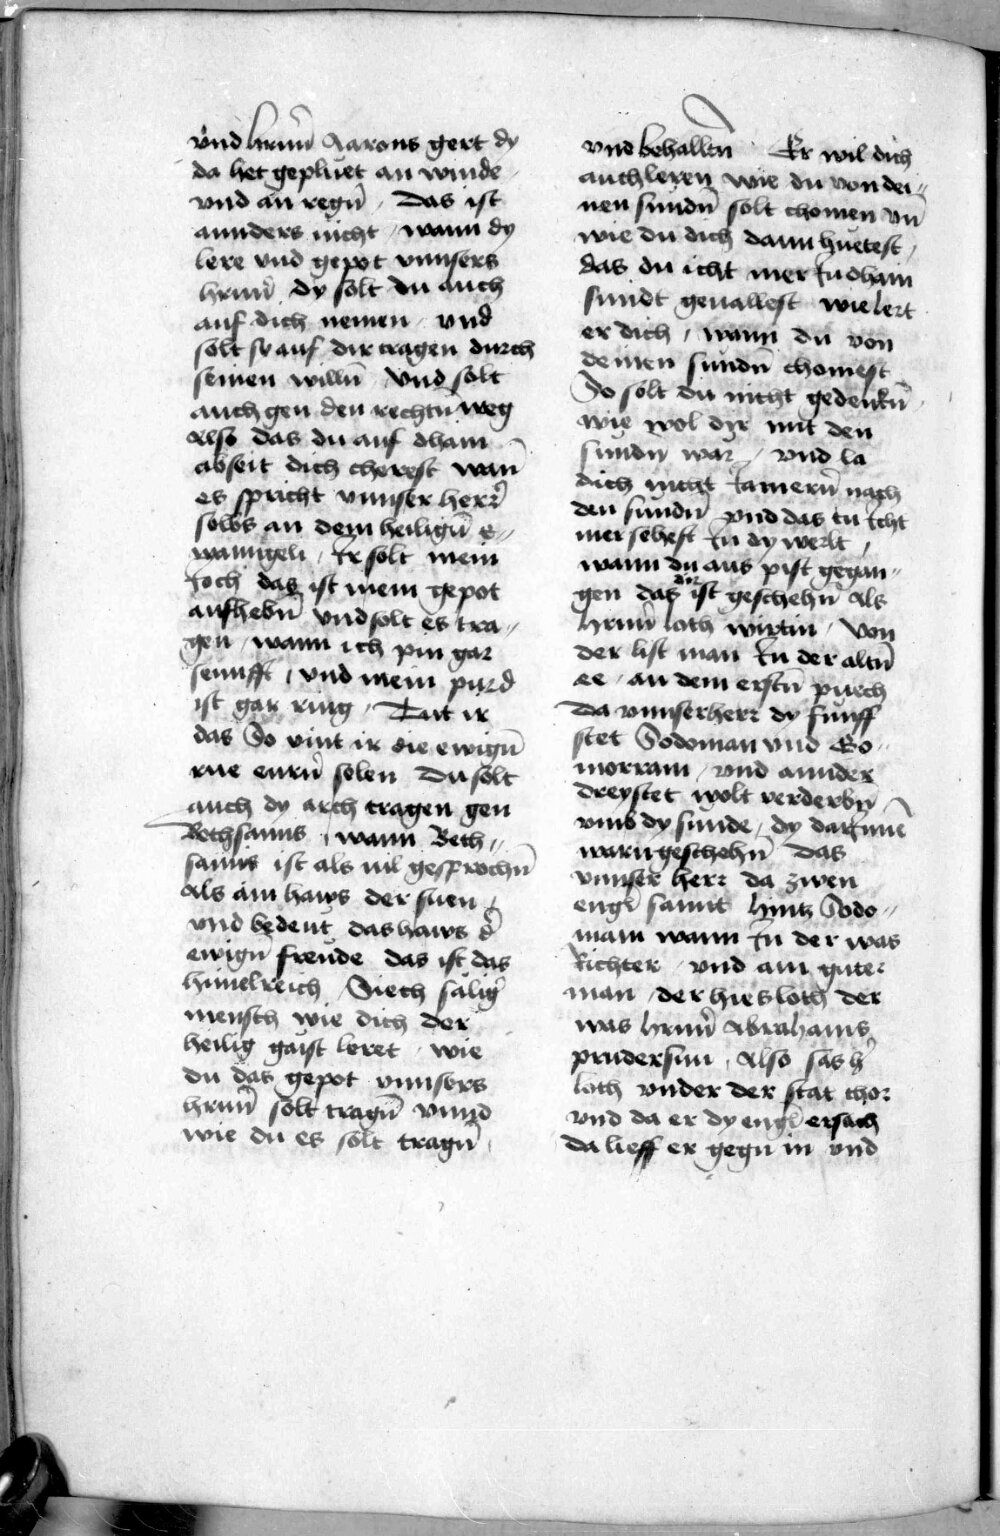 vnd hrnn̄ Aarons gert dy
da het gepluet an winde
vnd an regn̄ Das ist
annders nicht / wann dy
lere vnd gepot vnnsers
hrnn̄ dy solt du auch
auf dich nemen / vnd
solt sy auf dir tragen durch
seinen willn̄ vnd solt
auch gen den rechtn̄ weg
Also das du auf dhain
abseit dich cherest wan̄
es spricht vnnser herr
selbs an dem heilign̄ E=
wanngeli / Ir solt mein
Joch das ist mein gepot
aufhebn̄ vnd solt es tra=
gen / wann ich pin gar
sennfft / vnd mein purd
ist gar ring / Tut ir
das So vint ir die ewign̄
rue eurn̄ selen Du solt
auch dy arch tragen gen
Bethsamis / wann Beth=
samis ist als uil gesprochn̄
Als ain haws der sunn /
vnd bedeut das haws d̄
ewign̄ freude das ist das
himelreich / Siech saliḡ
mensch wie dich der
heilig gaist leret / wie
du das gepot vnnsers
hrnn̄ solt tragn̄ vnnd
wie du es solt tragn̄ /
vnd behallten Er wil dich
auch leren wie du von dei=
nen sundn̄ solt chomen vn̄
wie du dich dann huetest /
das du icht mer In dhain
sundt geuallest wie lert
er dich / wann du von
deinen sundn̄ chomest
So solt du nicht gedenkn̄
wie wol dir mit den
sundn̄ war / vnd la
dich nicht Iamern̄ nach
den sundn̄ vnd das tu Icht
mer sehest In dy werlt /
wann du aus pist gegan=
gen das dir ist geschehn̄ als
hrnn̄ loth wirtin / Von
der list man In der altn̄
ee / an dem erstn̄ puech
Da vnnser herr dy funff
stet Sodoman vnd Go=
morram / vnd annder
dreystet wolt verderbn̄
vmb dy sunde / dy darInne
warn geschehn̄ Das
vnnser herr da zwen
engl̄ sannt hintz Sodo=
mam wann In der was
Richter / vnd ain guter
man / der hies loth der
was hrnn̄ Abrahams
prudersun / Also sas h̄
loth vnder der stat chor
vnd da er dy engl̄ ersach
da lieff er gegn in vnd